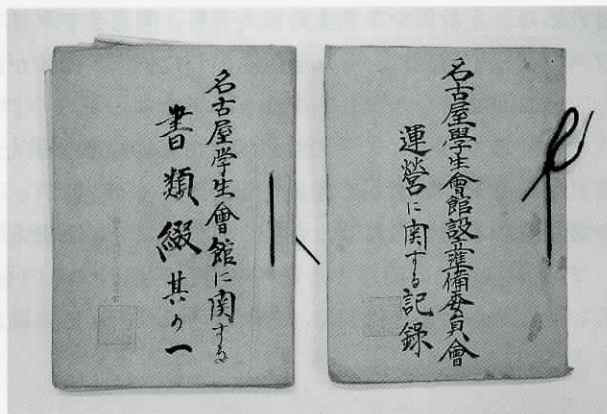 名古屋學生會館設立準備委員會
運營に関する記録
名古屋学生會館に関する
書類綴其の一